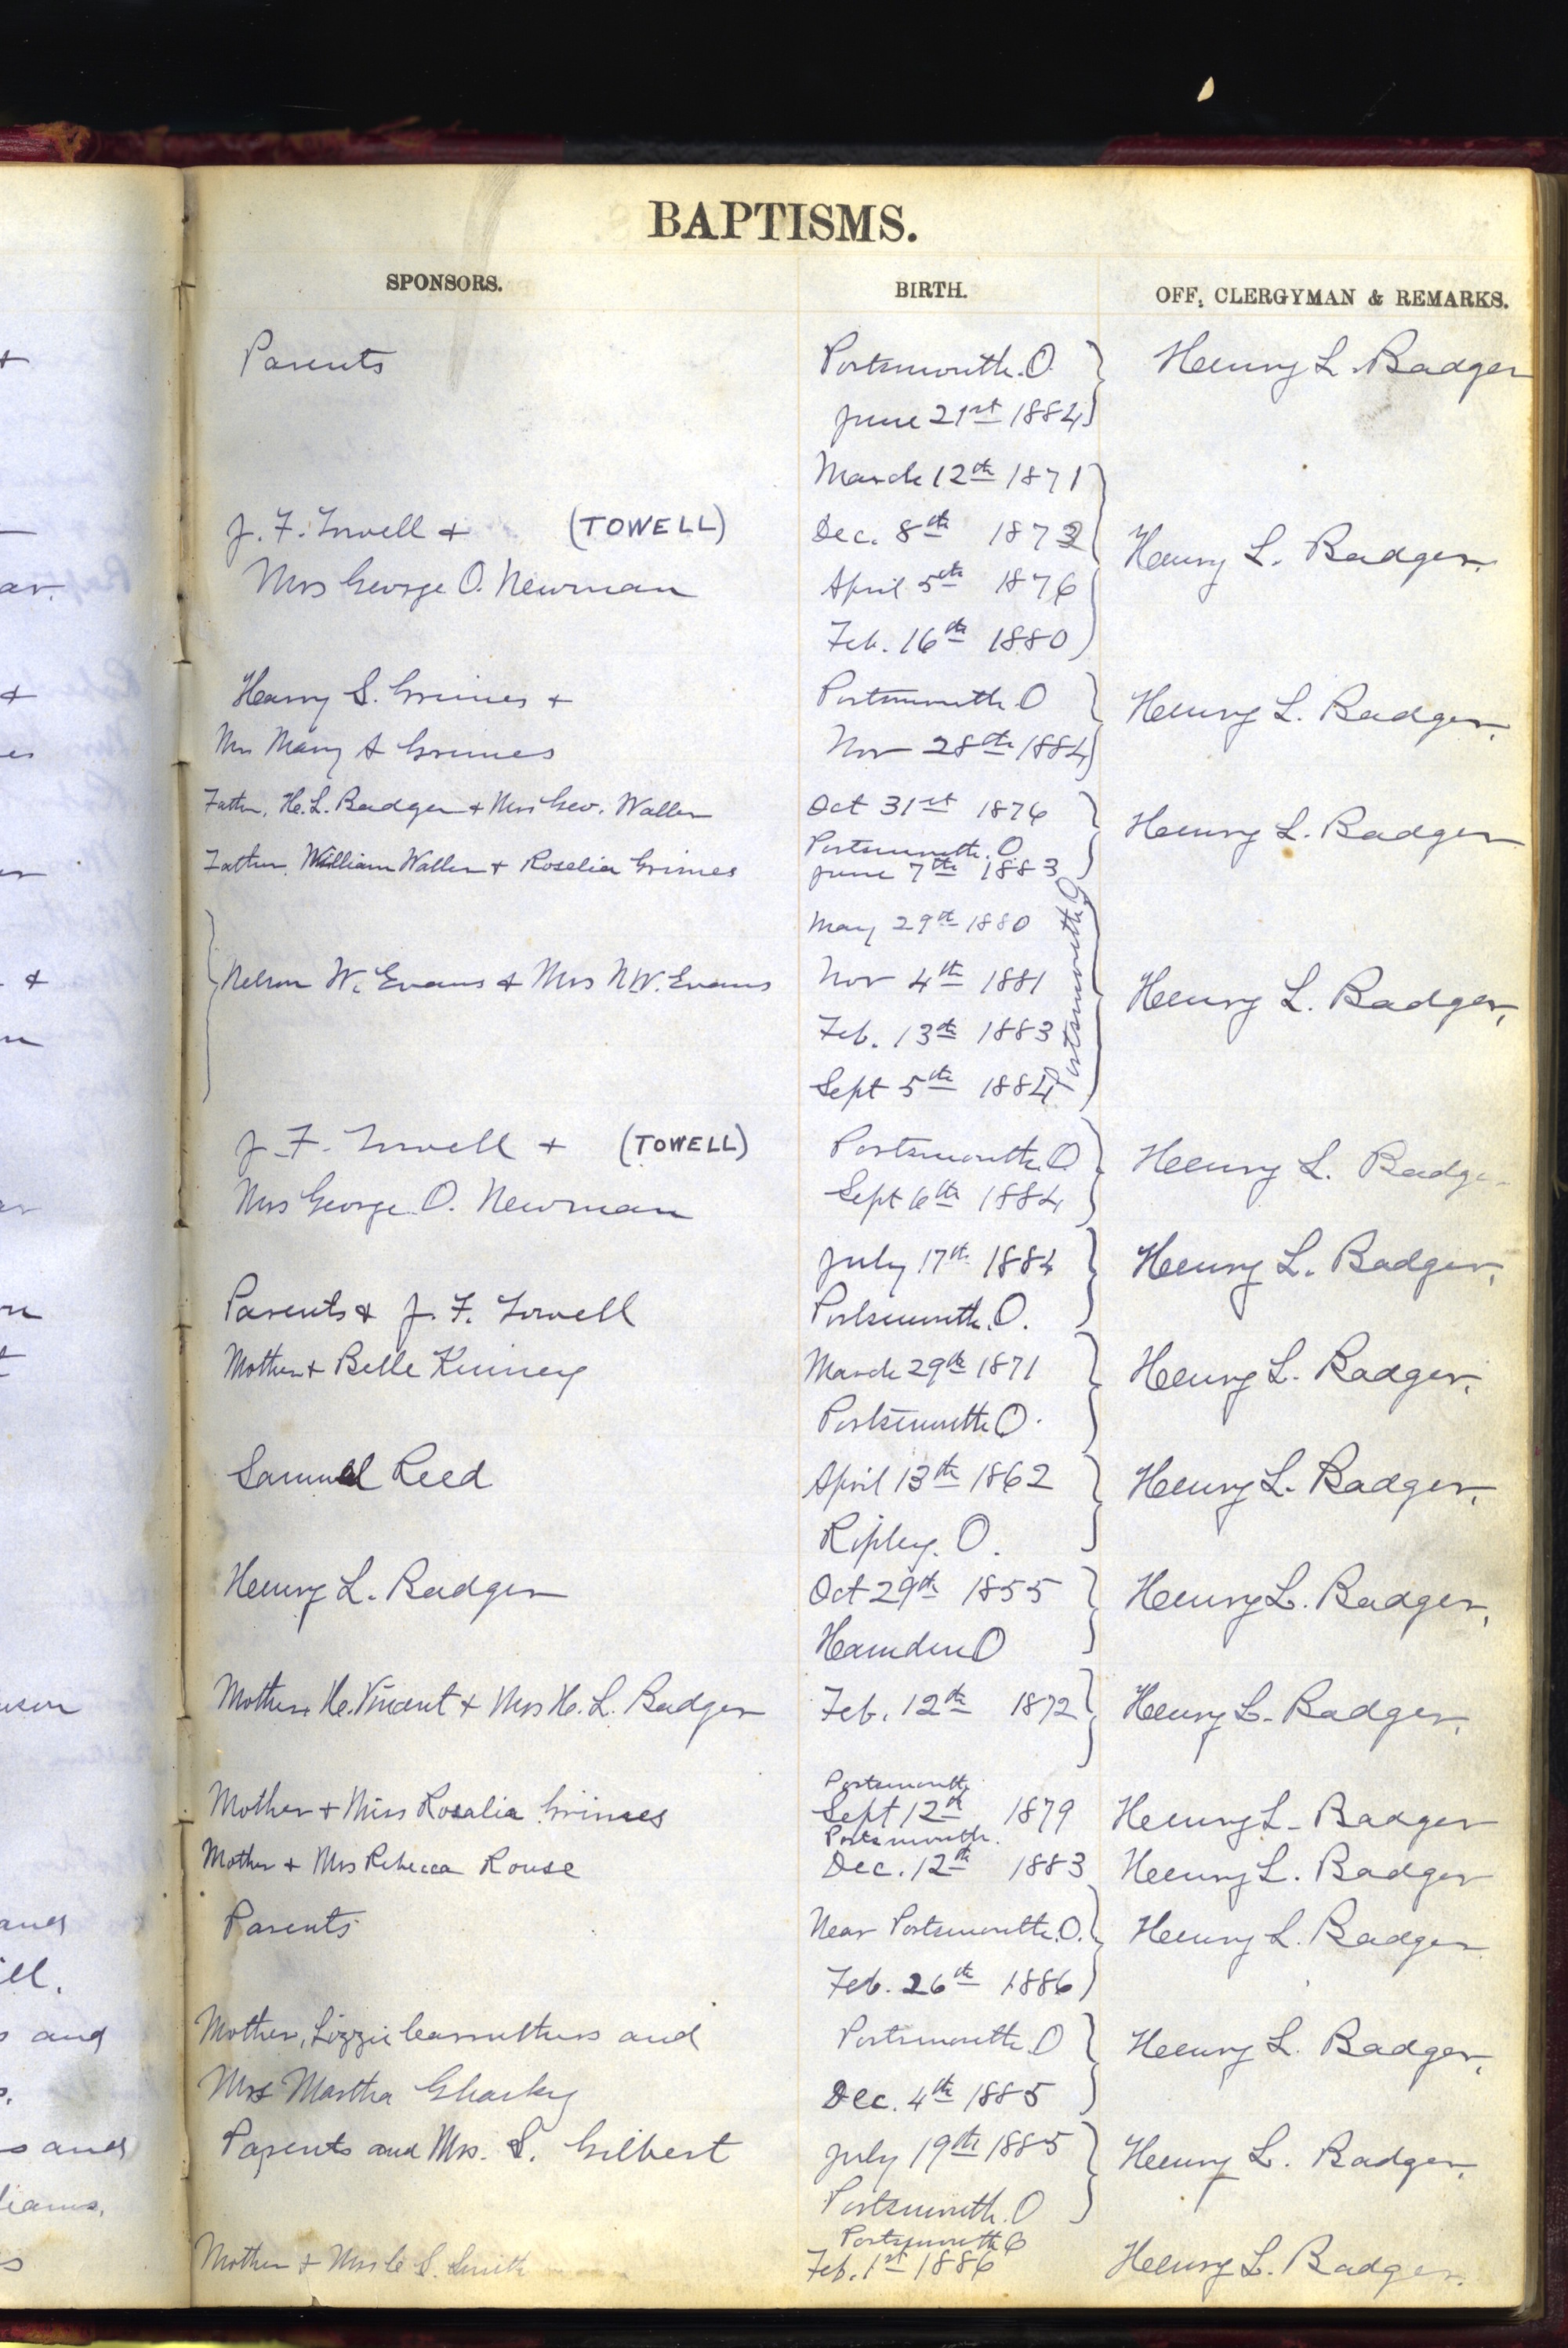 BAPTISMS.
SPONSORS. BIRTH. OFF. CLERGYMAN & REMARKS.
+ Parents Portsmouth. O. Henry L. Badger
June 21st 1884
March 12th 1871
J. F. Towell + (TOWELL) Dec. 8th 1873 Henry L. Badger.
ar. Mrs George O. Newman April 5th 1876
Feb. 16th 1880
+ Harry S. Grimes + Portsmouth O Henry L. Badger.
es Mrs Mary A Grimes Nov 28th 1884
Father, H. L. Badger + Mrs Geo. Waller Oct 31st 1876 Henry L. Badger
Portsmouth. O.
er Father, William Waller + Rosalia Grimes June 7th 1883
May 29th 1880
+ Nelson W. Evans + Mrs N.W. Evans Nov 4th 1881 Portsmouth O Henry L. Badger.
Feb. 13th 1883
Sept 5th 1884
J. F. Towell + (TOWELL) Portsmouth O Henry L. Badger
Mrs George O. Newman Sept 6th 1884
July 17th 1884 Henry L. Badger.
Parents + J. F. Towell Portsmouth. O.
Mother + Belle Kinney March 29th 1871 Henry L. Badger.
Portsmouth O.
Samuel Reed April 13th 1862 Henry L. Badger.
Ripley. O.
Henry L. Badger Oct 29th 1855 Henry L. Badger.
Hamden O
Mother, H. Vincent + Mrs H. L. Badger Feb. 12th 1872 Henry L. Badger.
Portsmouth
Mother + Miss Rosalia Grimes Sept 12th 1879 Henry L. Badger
Portsmouth.
Mother + Mrs Rebecca Rouse Dec. 12th 1883 Henry L. Badger
and Parents Near Portsmouth. O. Henry L. Badger
ill. Feb. 26th 1886
and Mother, Lizzie Carruthers and Portsmouth. O Henry L. Badger.
Mrs Martha Gharky Dec. 4th 1885
and Parents and Mrs. S. Gilbert July 19th 1885 Henry L. Badger.
liams. Portsmouth. O
Portsmouth O
Mother + Mrs C. S. Smith Feb. 1st 1886 Henry L. Badger.